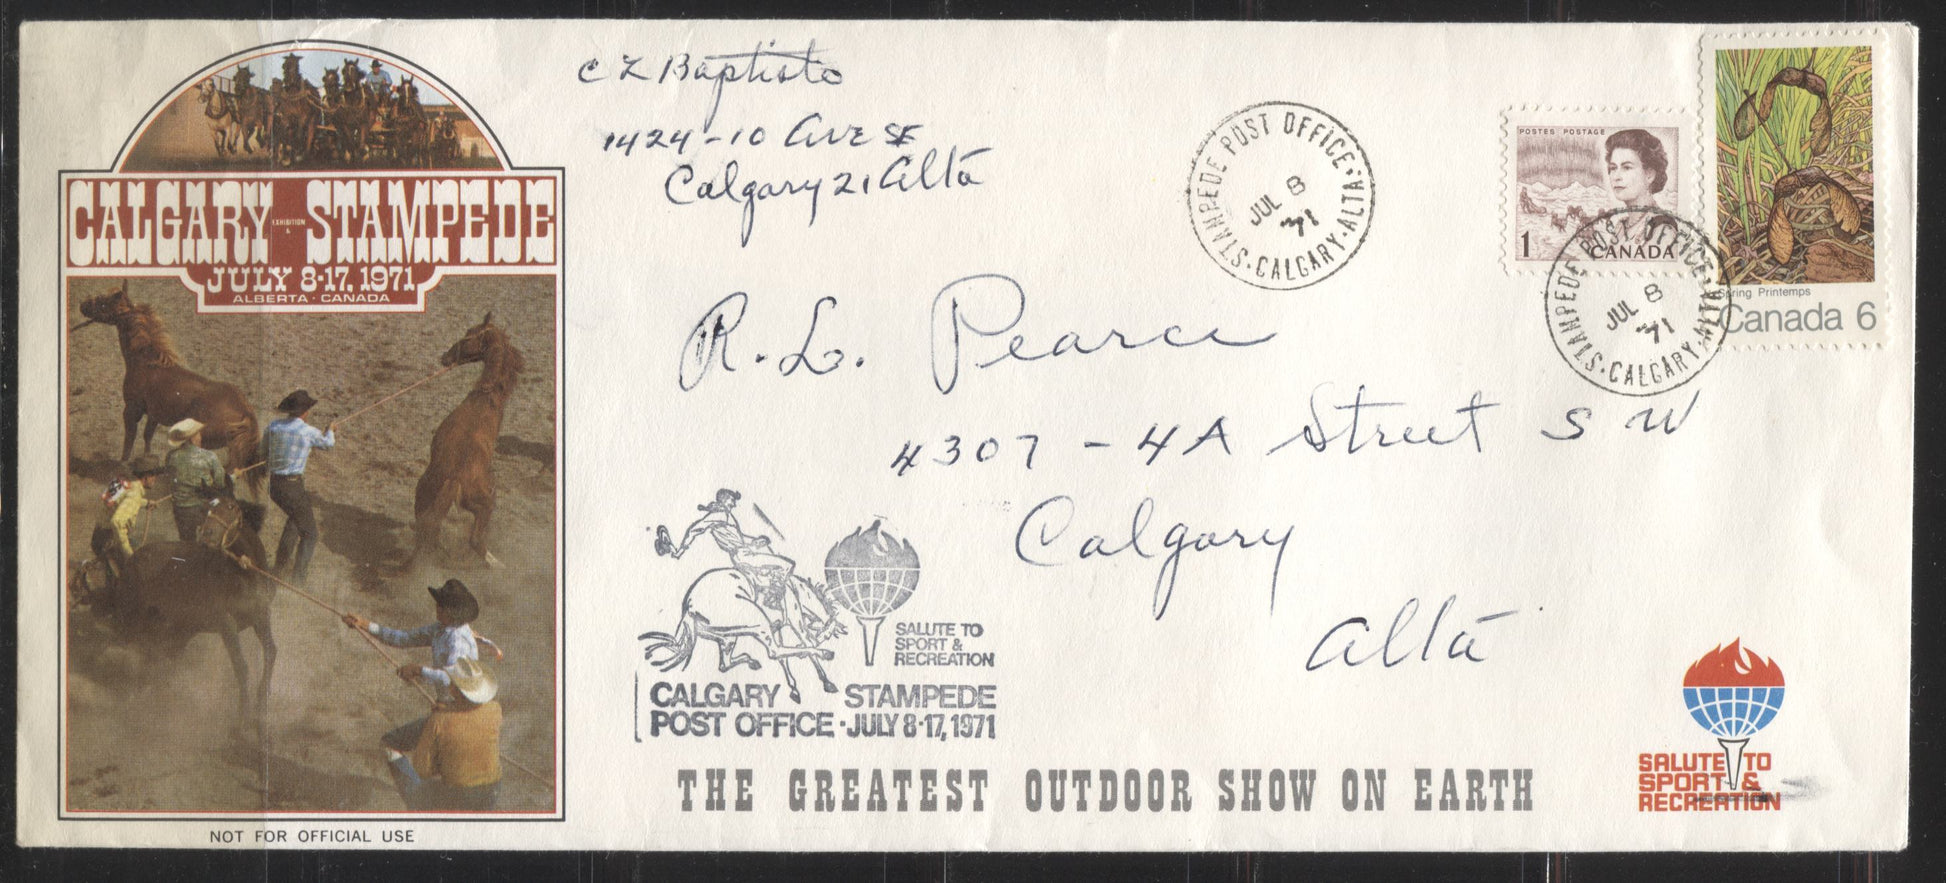 CALGARY EXHIBITION & STAMPEDE
JULY 8-17, 1971
ALBERTA · CANADA
NOT FOR OFFICIAL USE
C L Baptiste
1424-10 Ave SE
Calgary 21 Alta
STAMPEDE POST OFFICE · CALGARY · ALTA
JUL 8
71
POSTES POSTAGE
1 CANADA
Spring Printemps
Canada 6
STAMPEDE POST OFFICE · CALGARY · ALTA
JUL 8
71
R. L. Pearce
4307 - 4A Street S W
Calgary
Alta
SALUTE TO
SPORT &
RECREATION
CALGARY STAMPEDE
POST OFFICE · JULY 8-17, 1971
THE GREATEST OUTDOOR SHOW ON EARTH
SALUTE TO
SPORT &
RECREATION